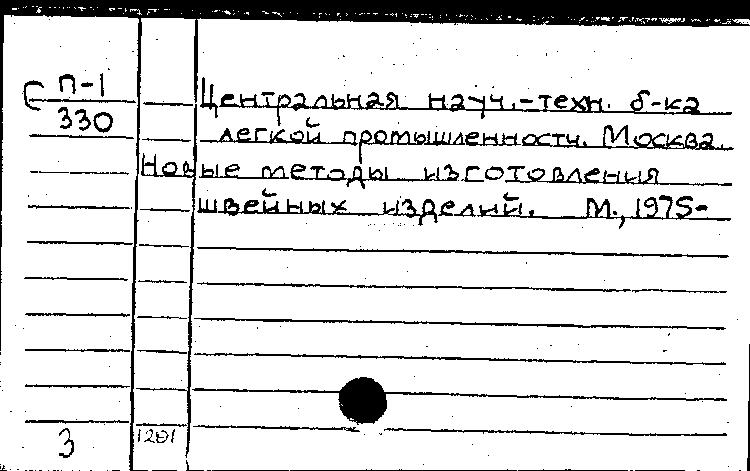 С П-1
330
Центральная науч.-техн. б-ка
легкой промышленности. Москва.
Новые методы изготовления
швейных изделий. М., 1975-
3
1281